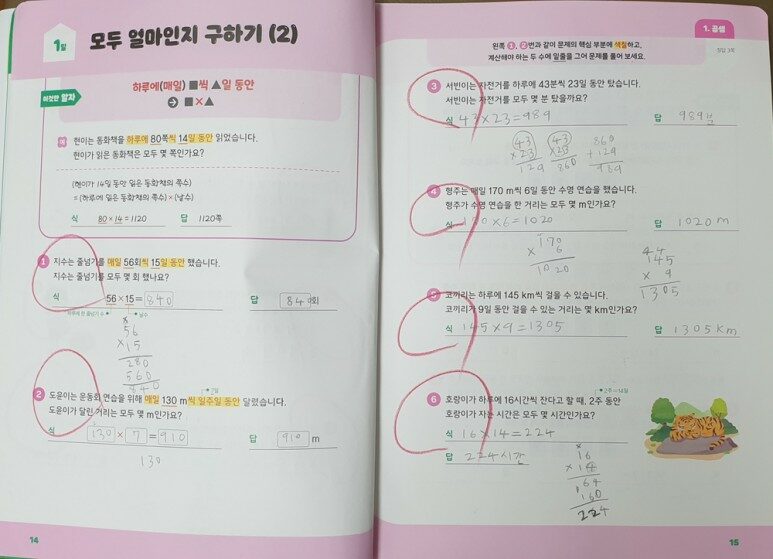 1일
모두 얼마인지 구하기 (2)
이것만 알자
하루에(매일) ■씩 ▲일 동안
➔ ■×▲
예 현이는 동화책을 하루에 80쪽씩 14일 동안 읽었습니다.
현이가 읽은 동화책은 모두 몇 쪽인가요?
(현이가 14일 동안 읽은 동화책의 쪽수)
=(하루에 읽은 동화책의 쪽수)×(날수)
식 80×14=1120 답 1120쪽
1 지수는 줄넘기를 매일 56회씩 15일 동안 했습니다.
지수는 줄넘기를 모두 몇 회 했나요?
식 56×15=840 답 840회
하루에 한 줄넘기 수 날수
56
×15
280
560
840
2 도윤이는 운동회 연습을 위해 매일 130 m씩 일주일 동안 달렸습니다.
도윤이가 달린 거리는 모두 몇 m인가요?
식 130×7=910 답 910 m
130
14
1. 곱셈
왼쪽 1, 2번과 같이 문제의 핵심 부분에 색칠하고,
계산해야 하는 두 수에 밑줄을 그어 문제를 풀어 보세요.
정답 3쪽
3 서빈이는 자전거를 하루에 43분씩 23일 동안 탔습니다.
서빈이는 자전거를 모두 몇 분 탔을까요?
식 43×23=989 답 989분
43 43 860
×23 ×23 +129
129 860 989
4 형주는 매일 170 m씩 6일 동안 수영 연습을 했습니다.
형주가 수영 연습을 한 거리는 모두 몇 m인가요?
식 170×6=1020 답 1020m
170
× 6
1020
44
145
× 9
1305
5 코끼리는 하루에 145 km씩 걸을 수 있습니다.
코끼리가 9일 동안 걸을 수 있는 거리는 몇 km인가요?
식 145×9=1305 답 1305km
2주=14일
6 호랑이가 하루에 16시간씩 잔다고 할 때, 2주 동안
호랑이가 자는 시간은 모두 몇 시간인가요?
식 16×14=224
답 224시간
16
×14
64
160
224
15